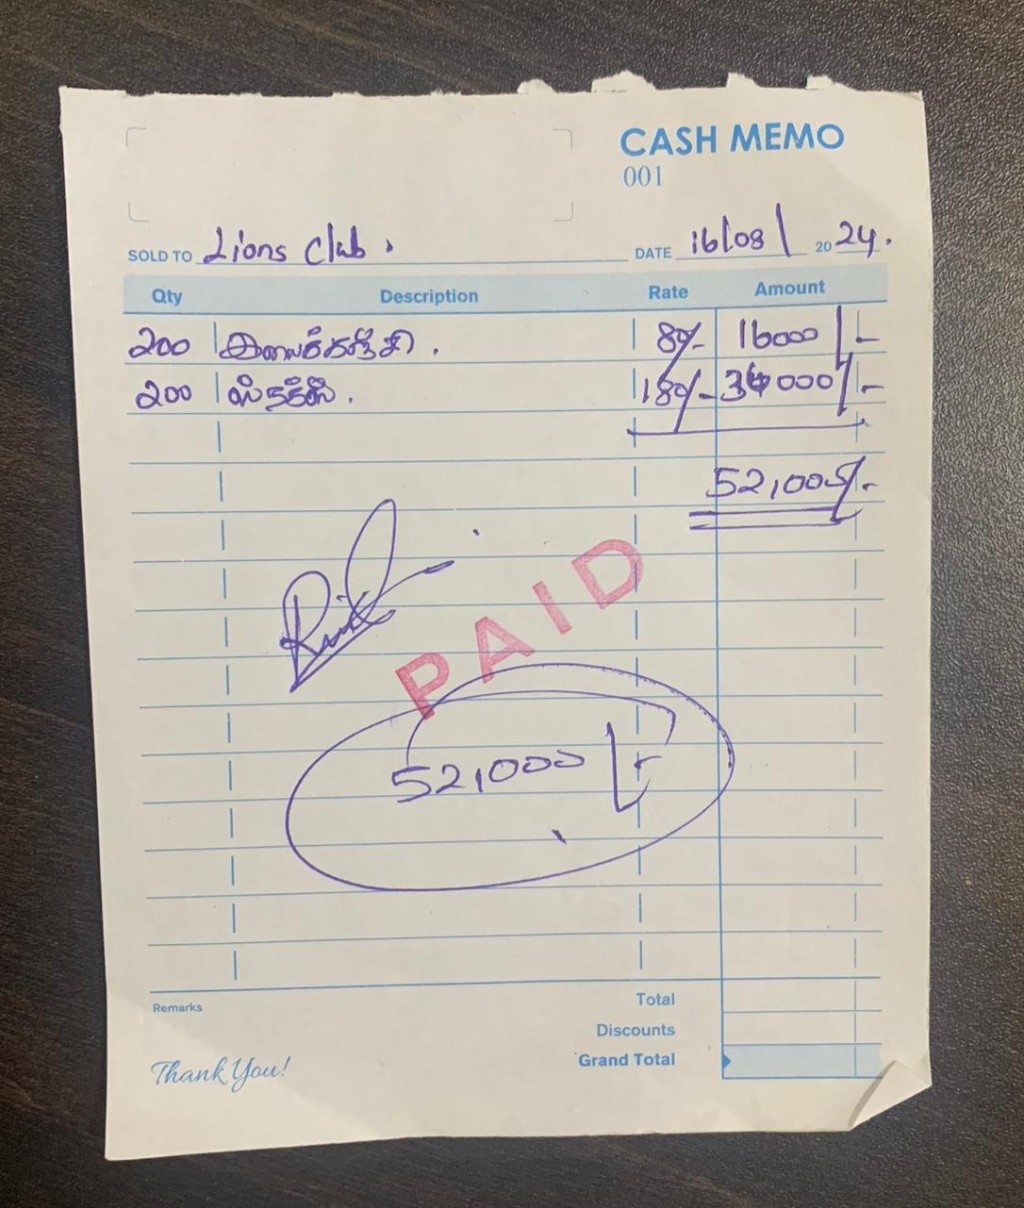 CASH MEMO
001
SOLD TO Lions Club. DATE 16/08/ 20 24.
Qty Description Rate Amount
200 இலைக்கஞ்சி . 80/- 16000/-
200 180/- 36000/-
52,000/-
PAID
52,000/-
Remarks Total
Discounts
Grand Total
Thank You!